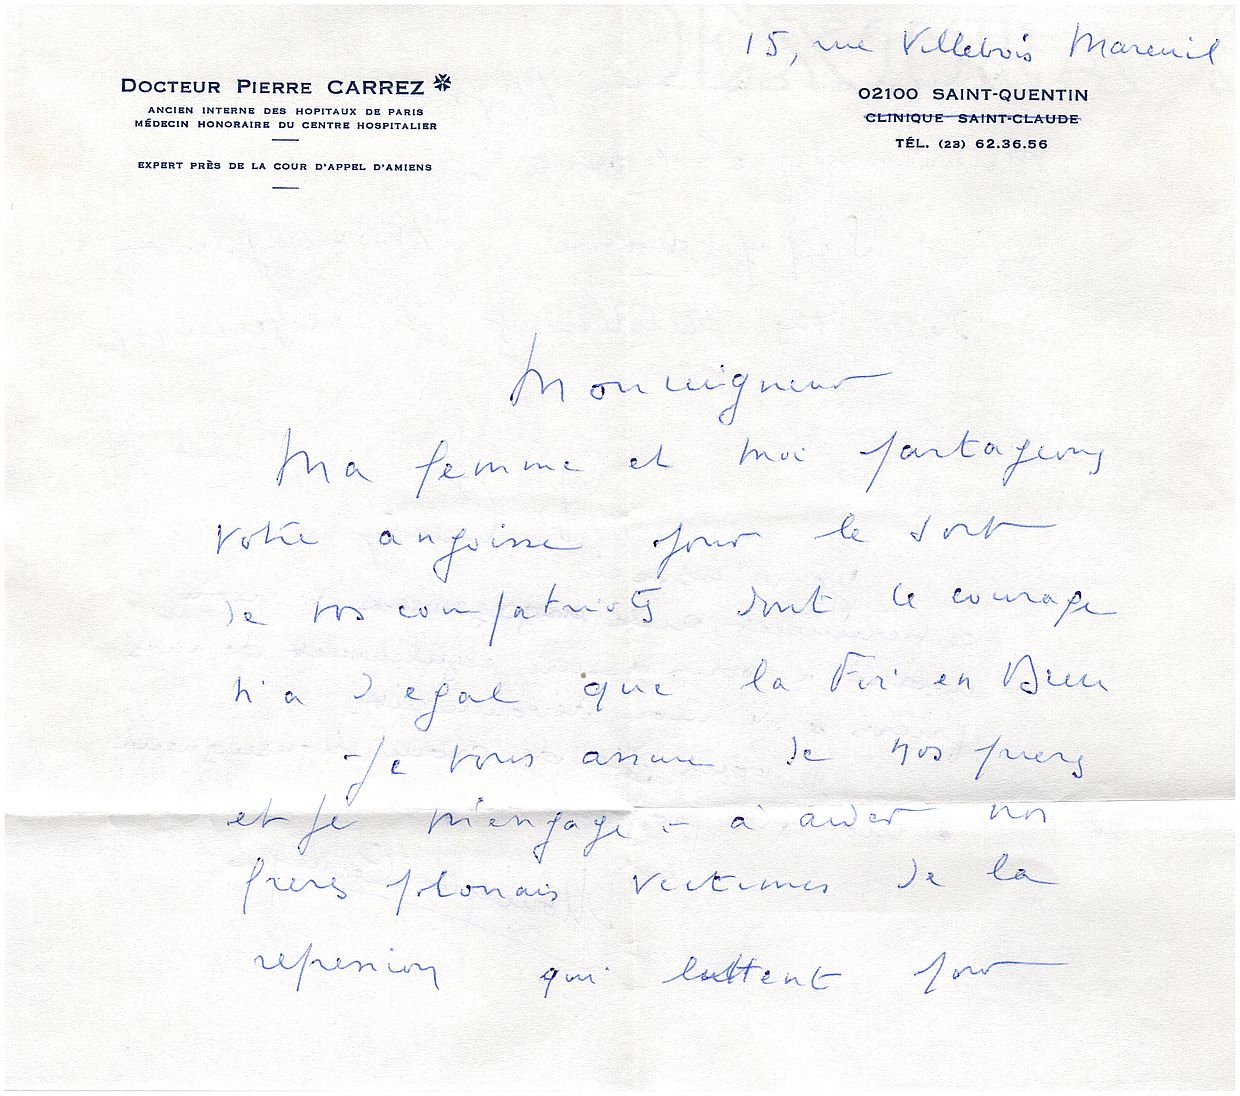 15, rue Villebois Mareuil
DOCTEUR PIERRE CARREZ
ANCIEN INTERNE DES HOPITAUX DE PARIS
MÉDECIN HONORAIRE DU CENTRE HOSPITALIER
EXPERT PRÈS DE LA COUR D'APPEL D'AMIENS
02100 SAINT-QUENTIN
CLINIQUE SAINT-CLAUDE
TÉL. (23) 62.36.56
Monseigneur
Ma femme et moi partageons
votre angoisse pour le sort
de vos compatriotes dont le courage
n'a d'egal que la Foi en Dieu
- Je vous assure de nos prieres
et je m'engage - à aider nos
freres polonais victimes de la
repression qui luttent pour